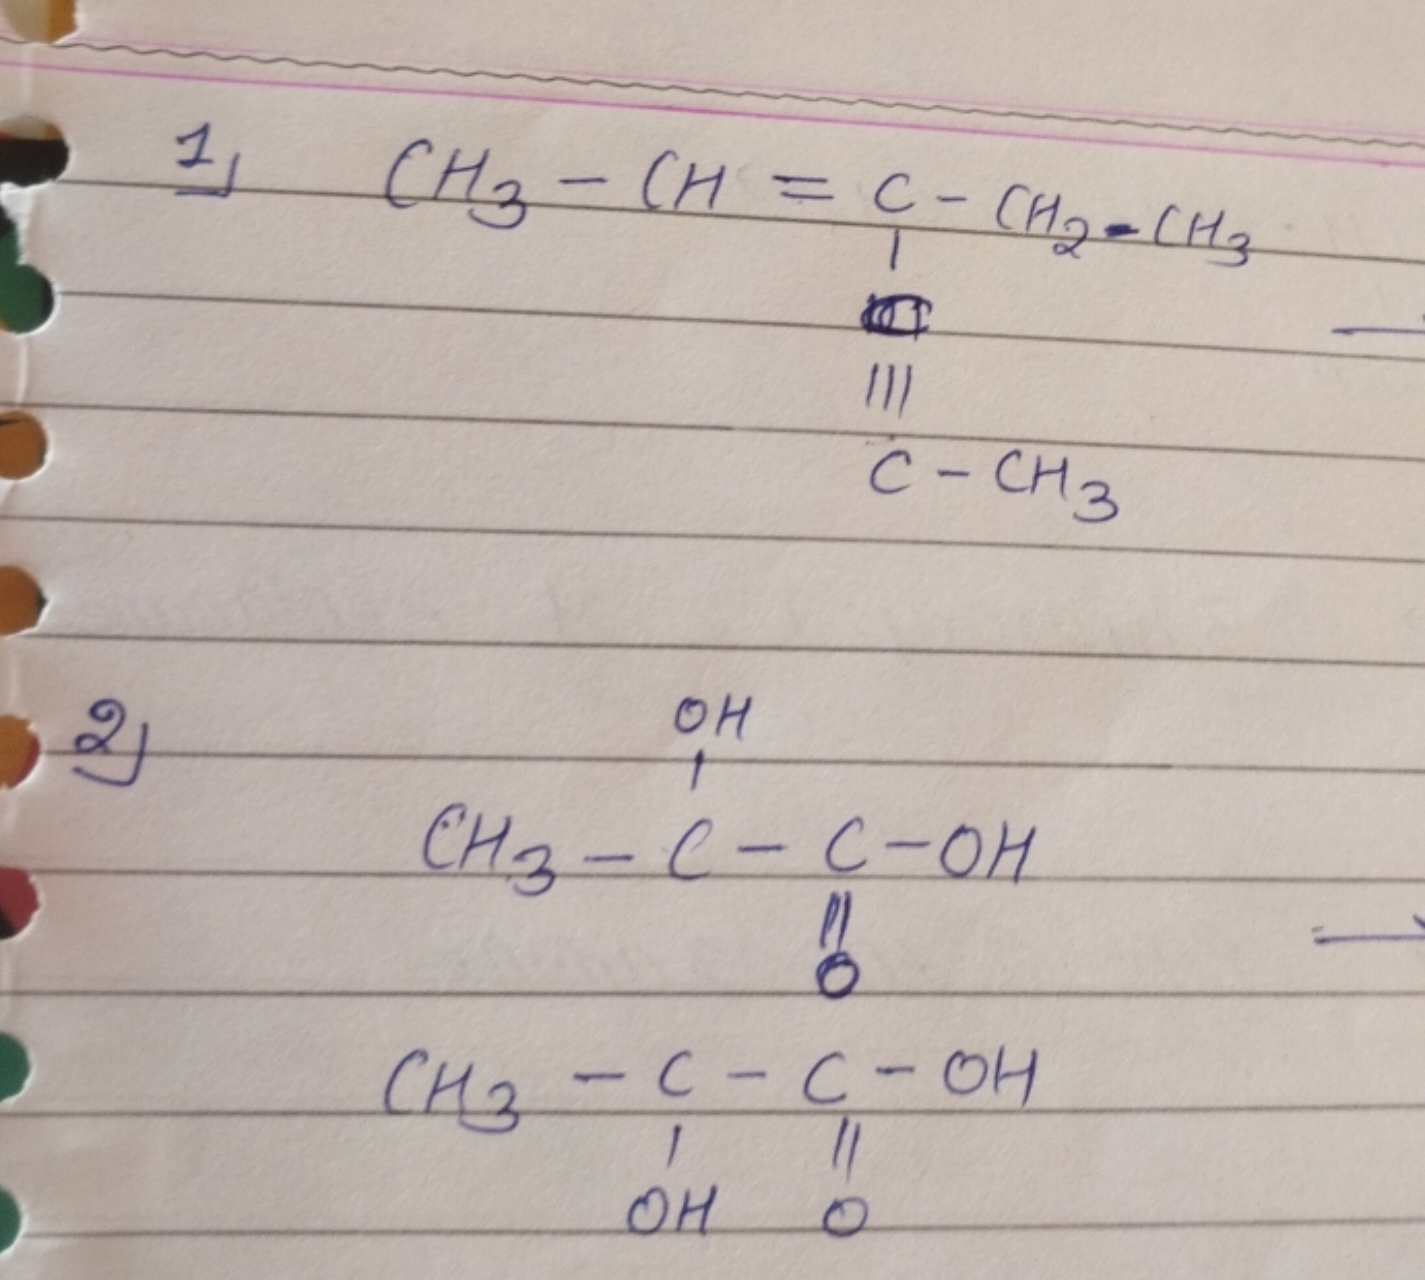 1) CH3 - CH = C - CH2 - CH3
|
|||
C - CH3
2) OH
|
CH3 - C - C - OH
||
O
CH3 - C - C - OH
| ||
OH O